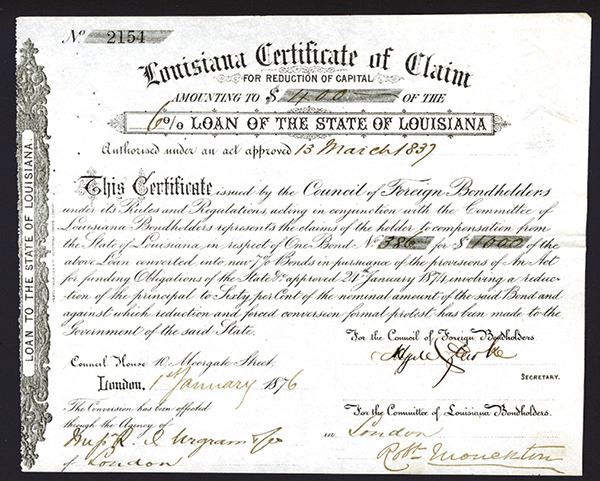 No 2154
Louisiana Certificate of Claim
FOR REDUCTION OF CAPITAL
AMOUNTING TO $ 400 OF THE
6% LOAN OF THE STATE OF LOUISIANA
Authorised under an act approved 13 March 1837
This Certificate issued by the Council of Foreign Bondholders
under its Rules and Regulations, acting in conjunction with the Committee of
Louisiana Bondholders represents the claims of the holder to compensation from
the State of Louisiana, in respect of One Bond No 386 for $ 1000 of the
above Loan converted into new 7% Bonds in pursuance of the provisions of An Act
for funding Obligations of the State &c approved 24th January 1874, involving a reduc-
tion of the principal to Sixty per Cent of the nominal amount of the said Bond and
against which reduction and forced conversion formal protest has been made to the
Government of the said State.
For the Council of Foreign Bondholders
Hyde Clarke
SECRETARY.
Council House 10, Moorgate Street,
London, 1st January 1876
The Conversion has been effected
through the Agency of
of London
For the Committee of Louisiana Bondholders.
in London
Robt Monckton
LOAN TO THE STATE OF LOUISIANA